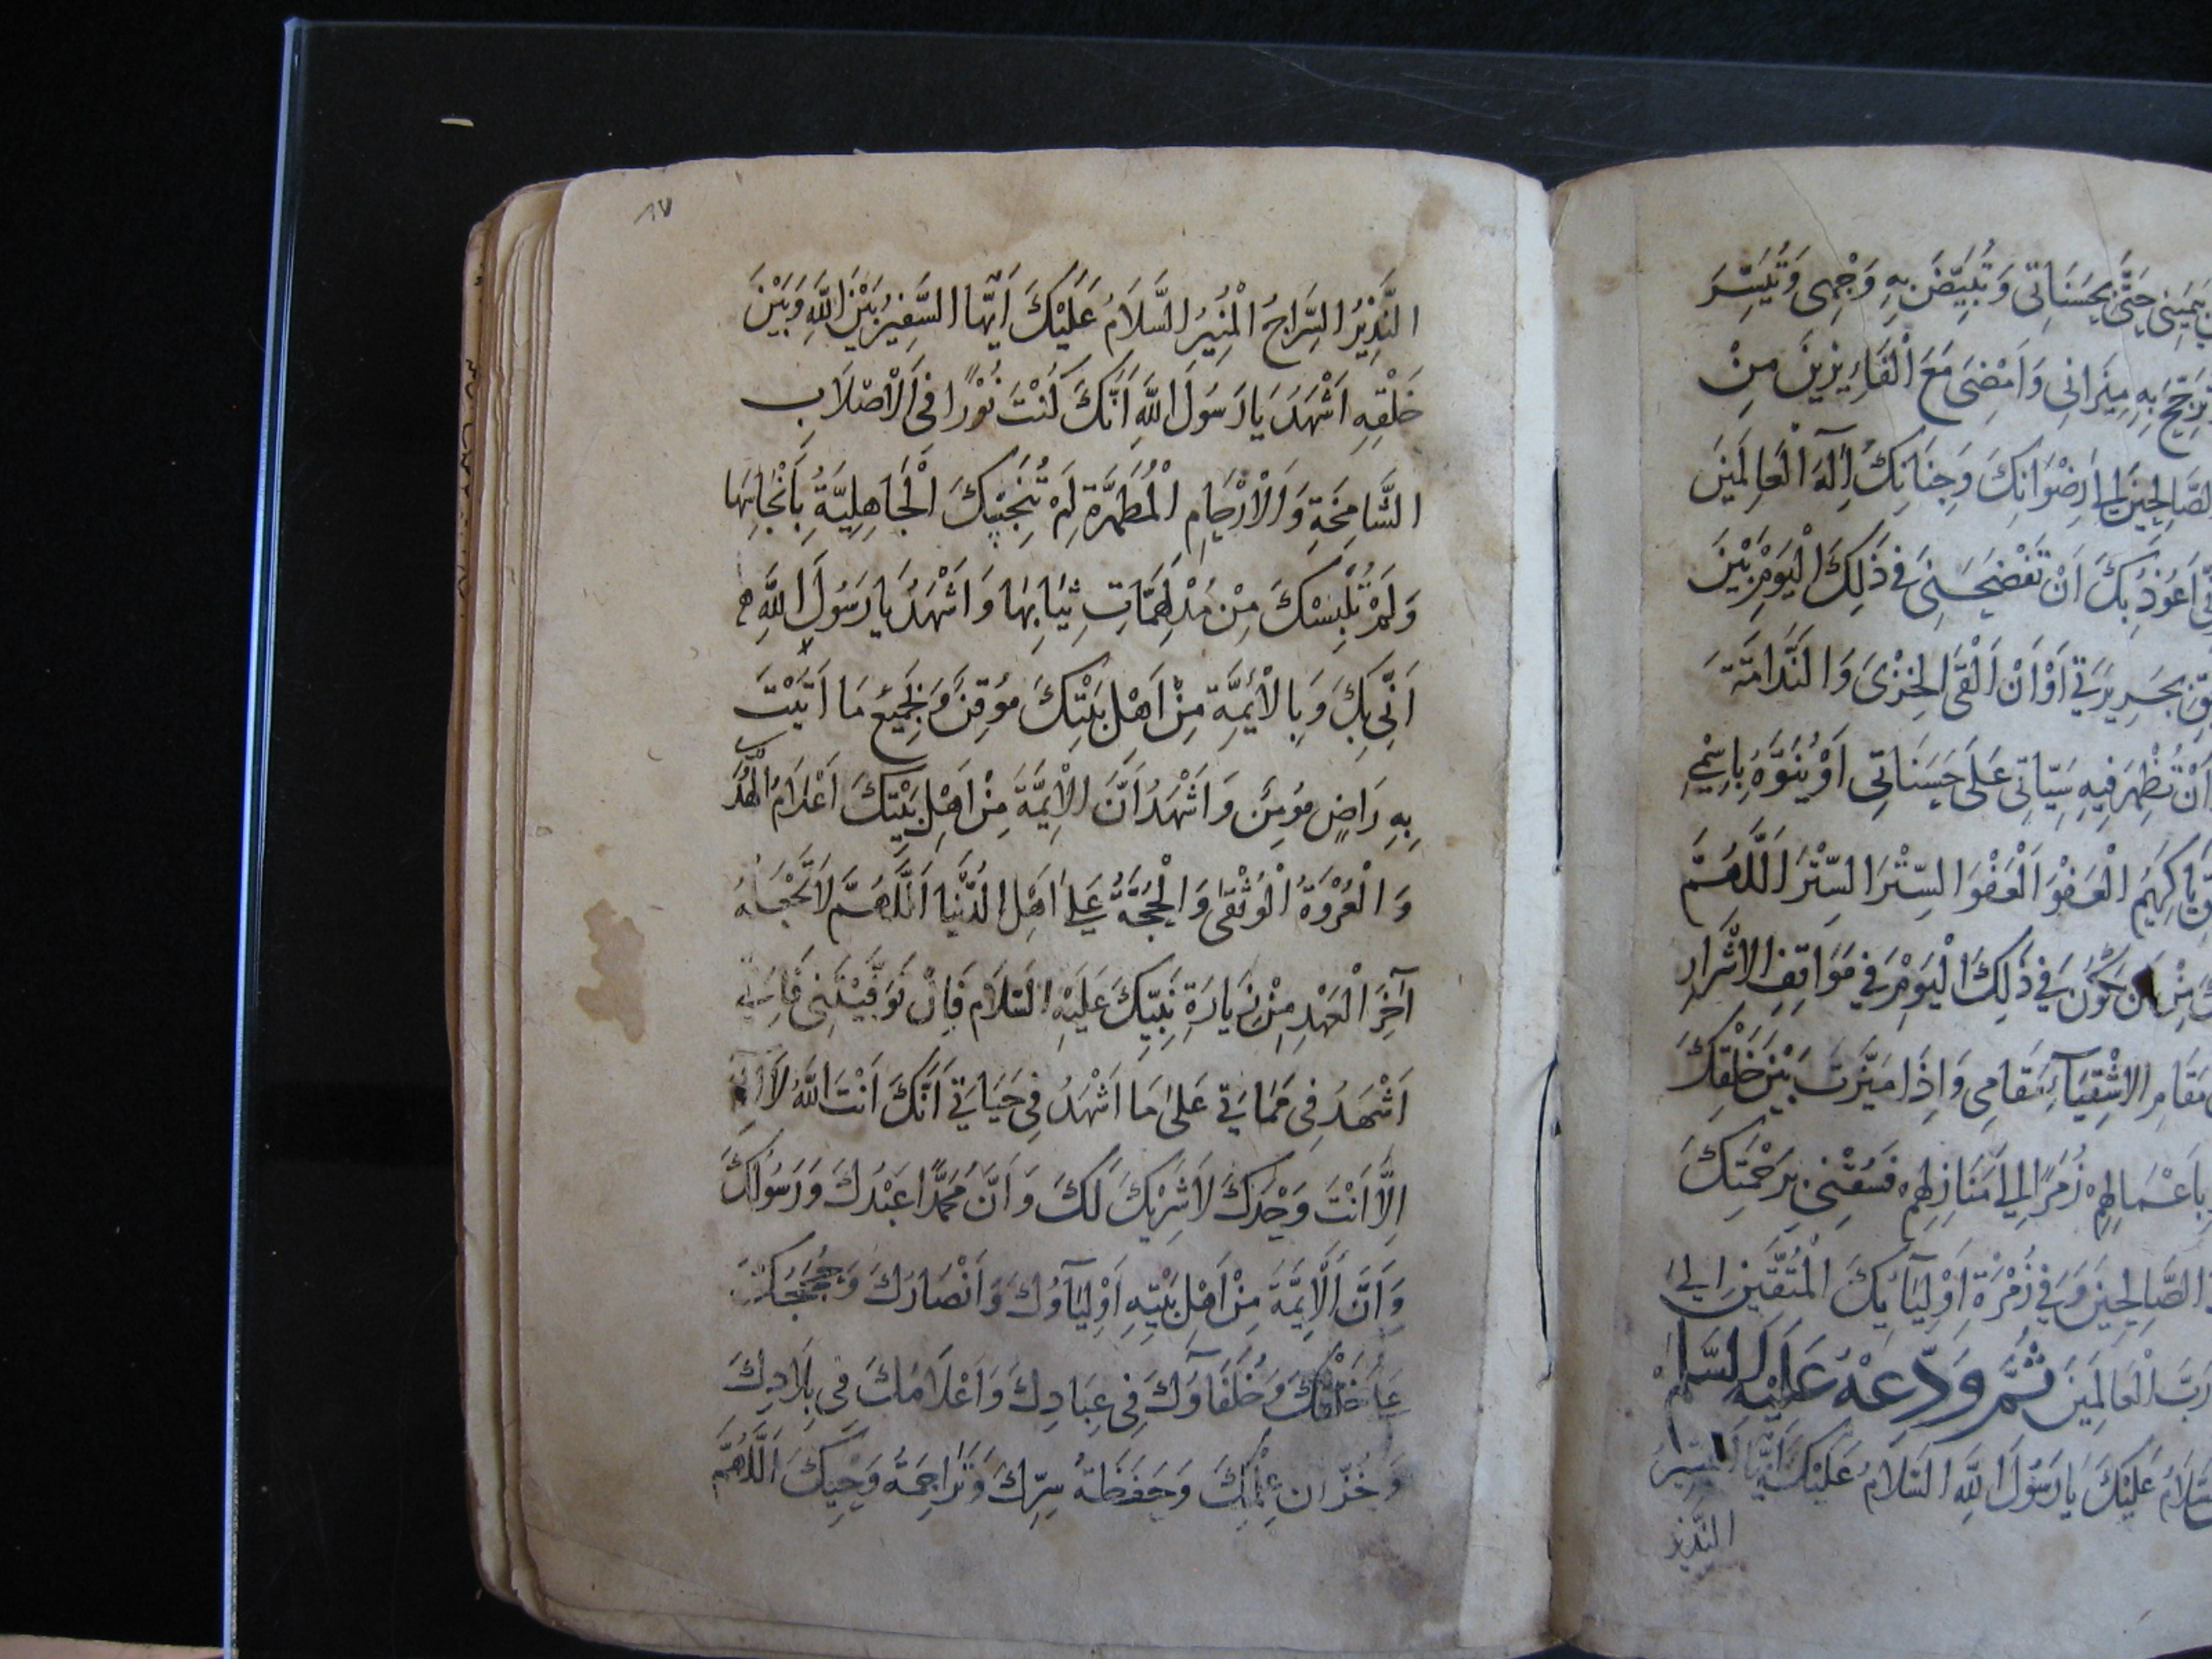 بِيَمِينِي حَتَّى بِحَسَنَاتِي وَتُبَيِّضَ بِهِ وَجْهِي وَتُيَسِّرَ
تُرَجِّحَ بِهِ مِيزَانِي وَاَمْضِيَ مَعَ الْفَايِزِينَ مِنْ
الصَّالِحِينَ اِلَى رِضْوَانِكَ وَجِنَانِكَ اِلَهَ الْعَالَمِينَ
اَعُوذُ بِكَ اَنْ تَفْضَحَنِي فِي ذَلِكَ الْيَوْمِ بَيْنَ
بِجَرِيرَتِي اَوْ اَنْ اَلْقَى الْخِزْيَ وَالنَّدَامَةَ
اَنْ تُظْهِرَ فِيهِ سَيِّاتِي عَلَى حَسَنَاتِي اَوْ يُنَوَّهَ بِاسْمِي
يَا كَرِيمُ الْعَفْوَ الْعَفْوَ السِّتْرَ السِّتْرَ اَللَّهُمَّ
مِنْ اَنْ يَكُونَ فِي ذَلِكَ الْيَوْمِ فِي مَوَاقِفِ الاَشْرَارِ
مَقَامِ الاَشْقِيَآءِ مَقَامِي وَاِذَا مَيَّزْتَ بَيْنَ خَلْقِكَ
بِاَعْمَالِهِمْ زُمَرًا اِلَى مَنَازِلِهِمْ فَسُقْنِي بِرَحْمَتِكَ
الصَّالِحِينَ وَفِي زُمْرَةِ اَوْلِيَآئِكَ الْمُتَّقِينَ اِلَى
رَبَّ الْعَالَمِينَ ثُمَّ وَدِّعْهُ عَلَيْهِ السَّلَامُ
السَّلَامُ عَلَيْكَ يَا رَسُولَ اللهِ السَّلَامُ عَلَيْكَ اَيُّهَا الْبَشِيرُ
النَّذِيرُ
٨٧
النَّذِيرُ السِّرَاجُ الْمُنِيرُ السَّلَامُ عَلَيْكَ اَيُّهَا السَّفِيرُ بَيْنَ اللهِ وَبَيْنَ
خَلْقِهِ اَشْهَدُ يَا رَسُولَ اللهِ اَنَّكَ كُنْتَ نُوْرًا فِي الْاَصْلَابِ
الشَّامِخَةِ وَالْاَرْحَامِ الْمُطَهَّرَةِ لَمْ تُنَجِّسْكَ الْجَاهِلِيَّةُ بِاَنْجَاسِهَا
وَلَمْ تُلْبِسْكَ مِنْ مُدْلَهِمَّاتِ ثِيَابِهَا وَاَشْهَدُ يَا رَسُولَ اللهِ
اَنِّي بِكَ وَبِالْاَئِمَّةِ مِنْ اَهْلِ بَيْتِكَ مُوقِنٌ وَبِجَمِيعِ مَا اَتَيْتَ
بِهِ رَاضٍ مُؤْمِنٌ وَاَشْهَدُ اَنَّ الْاَئِمَّةَ مِنْ اَهْلِ بَيْتِكَ اَعْلَامُ الْهُدَى
وَالْعُرْوَةُ الْوُثْقَى وَالْحُجَّةُ عَلَى اَهْلِ الدُّنْيَا اَللَّهُمَّ لَا تَجْعَلْهُ
آخِرَ الْعَهْدِ مِنْ زِيَارَةِ نَبِيِّكَ عَلَيْهِ السَّلَام فَاِنْ تَوَفَّيْتَنِي فَاِنِّي
اَشْهَدُ فِي مَمَاتِي عَلَى مَا اَشْهَدُ فِي حَيَاتِي اَنَّكَ اَنْتَ اللهُ لَا اِلَهَ
اِلَّا اَنْتَ وَحْدَكَ لَا شَرِيْكَ لَكَ وَاَنَّ مُحَمَّدًا عَبْدُكَ وَرَسُولُكَ
وَاَنَّ الْاَئِمَّةَ مِنْ اَهْلِ بَيْتِهِ اَوْلِيَآؤُكَ وَاَنْصَارُكَ وَحُجَجُكَ
عَلَى خَلْقِكَ وَخُلَفَاؤُكَ فِي عِبَادِكَ وَاَعْلَامُكَ فِي بِلَادِكَ
وَخُزَّان عِلْمِكَ وَحَفَظَةُ سِرِّكَ وَتَرَاجِمَةُ وَحْيِكَ اَللَّهُمَّ